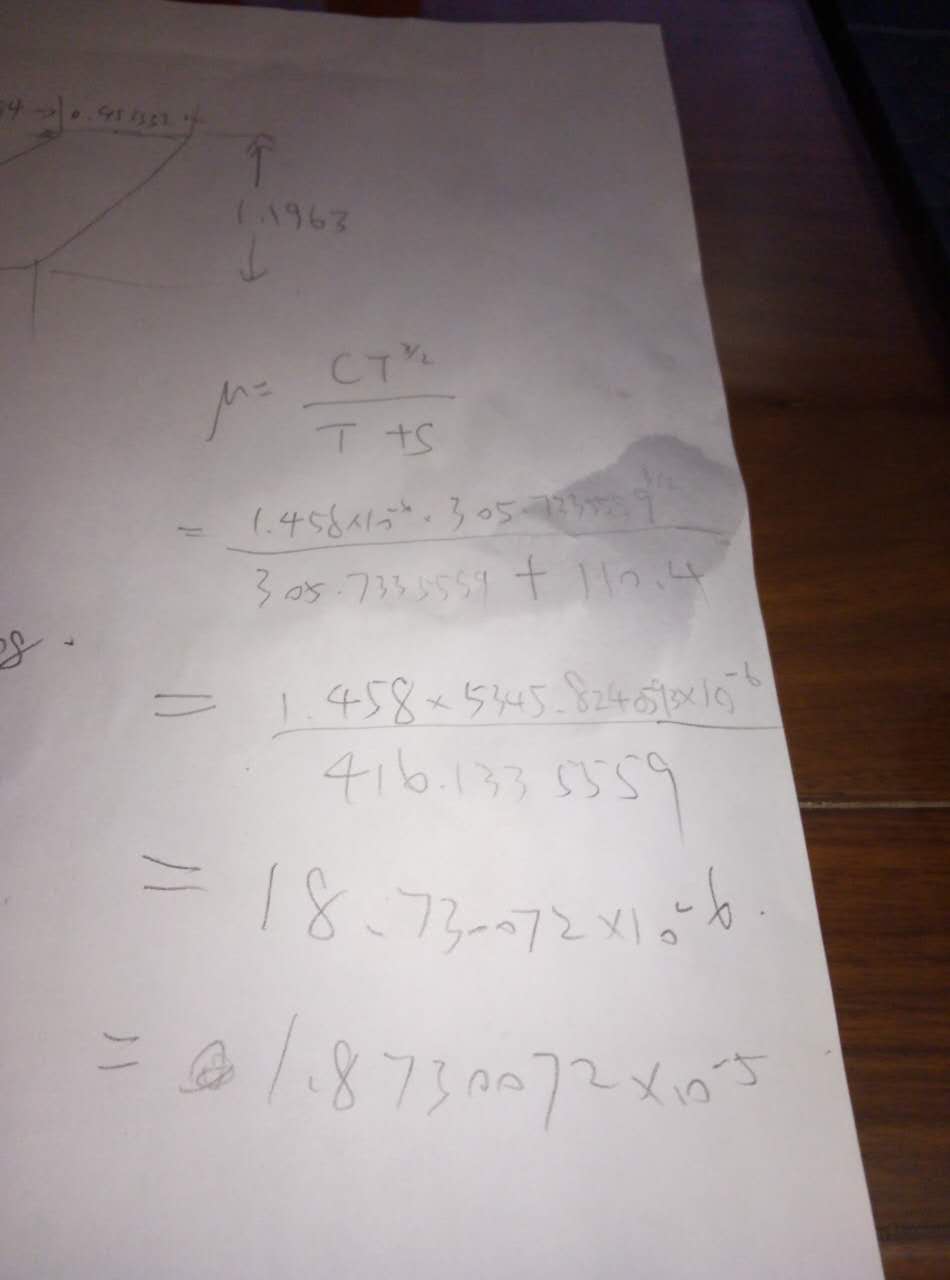 1.1963
μ= CT^3/2
T +S
= 1.458×10^-6 · 305.7335559^3/2
305.7335559 + 110.4
= 1.458×5345.8240593×10^-6
416.1335559
= 18.730072×10^-6.
= 1.8730072×10^-5